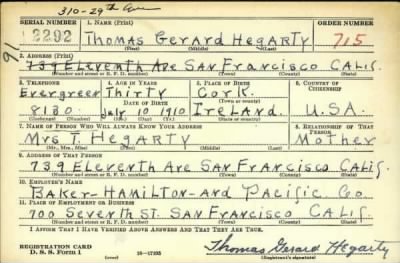 310-29th Ave
SERIAL NUMBER 1. NAME (Print) ORDER NUMBER
2292 Thomas Gerard Hegarty 715
(First) (Middle) (Last)
2. ADDRESS (Print)
739 Eleventh Ave San Francisco Calif.
(Number and street or R. F. D. number) (Town) (County) (State)
3. TELEPHONE 4. AGE IN YEARS 5. PLACE OF BIRTH 6. COUNTRY OF CITIZENSHIP
Evergreen Thirty Cork
DATE OF BIRTH (Town or county)
8130 July 10 1910 Ireland. U.S.A.
(Exchange) (Number) (Mo.) (Day) (Yr.) (State or country)
7. NAME OF PERSON WHO WILL ALWAYS KNOW YOUR ADDRESS 8. RELATIONSHIP OF THAT PERSON
Mrs T. Hegarty Mother
(Mr., Mrs., Miss) (First) (Middle) (Last)
9. ADDRESS OF THAT PERSON
739 Eleventh Ave San Francisco Calif.
(Number and street or R. F. D. number) (Town) (County) (State)
10. EMPLOYER'S NAME
Baker-Hamilton-and Pacific Co.
11. PLACE OF EMPLOYMENT OR BUSINESS
700 Seventh St. San Francisco Calif.
(Number and street or R. F. D. number) (Town) (County) (State)
I AFFIRM THAT I HAVE VERIFIED ABOVE ANSWERS AND THAT THEY ARE TRUE.
REGISTRATION CARD
D. S. S. Form 1 16-17105 Thomas Gerard Hegarty
(Registrant's signature)